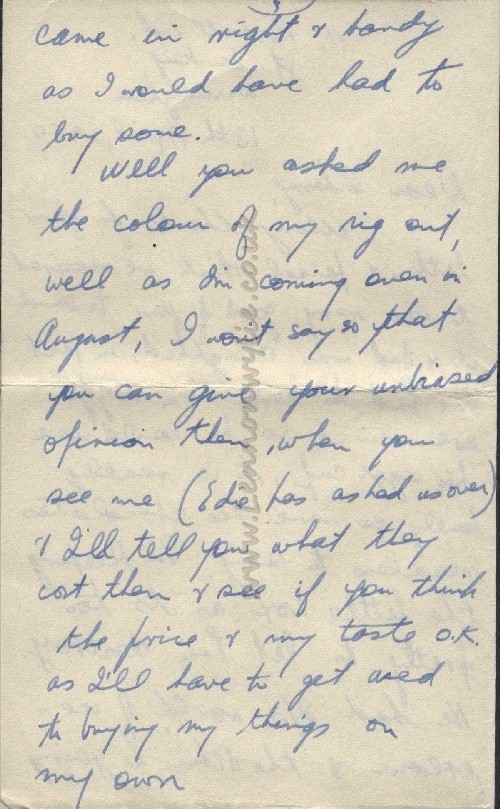 3
came in right & handy
as I would have had to
buy some.
Well you asked me
the colour of my rig out,
well as I'm coming over in
August, I wont say so that
you can give your unbiased
opinion then, when you
see me (Edie has asked us over)
& I'll tell you what they
cost then & see if you think
the price & my taste o.k.
as I'll have to get used
to buying my things on
my own